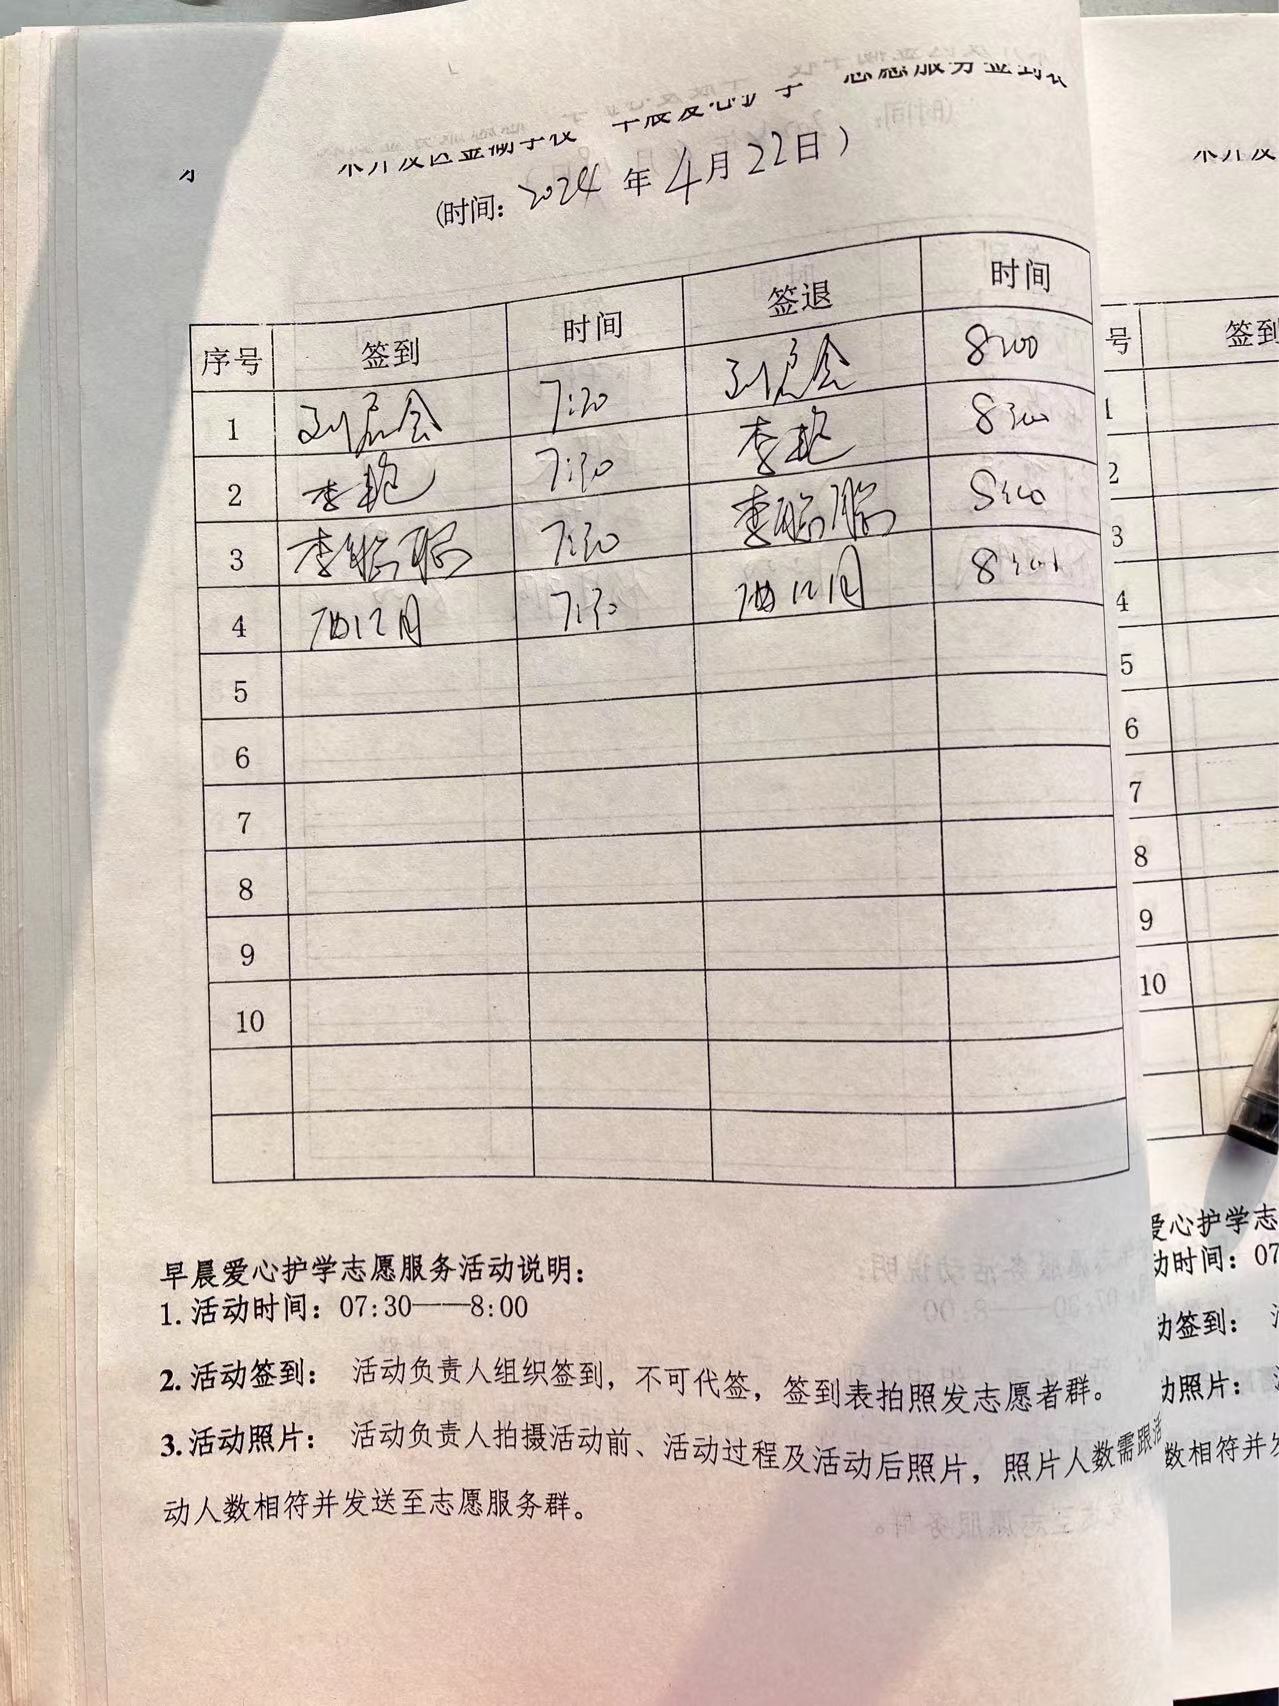 (时间: 2024 年 4月 22日)
序号 签到 时间 签退 时间
1 7:30 8:00
2 李艳 7:30 李艳 8:00
3 7:30 8:00
4 7:30 8:00
5
6
7
8
9
10
早晨爱心护学志愿服务活动说明:
1.活动时间: 07:30——8:00
2.活动签到: 活动负责人组织签到, 不可代签, 签到表拍照发志愿者群。
3.活动照片: 活动负责人拍摄活动前、活动过程及活动后照片, 照片人数需跟活
动人数相符并发送至志愿服务群。
号 签到
1
2
3
4
5
6
7
8
9
10
爱心护学志
动时间: 07
动签到:
动照片:
数相符并发